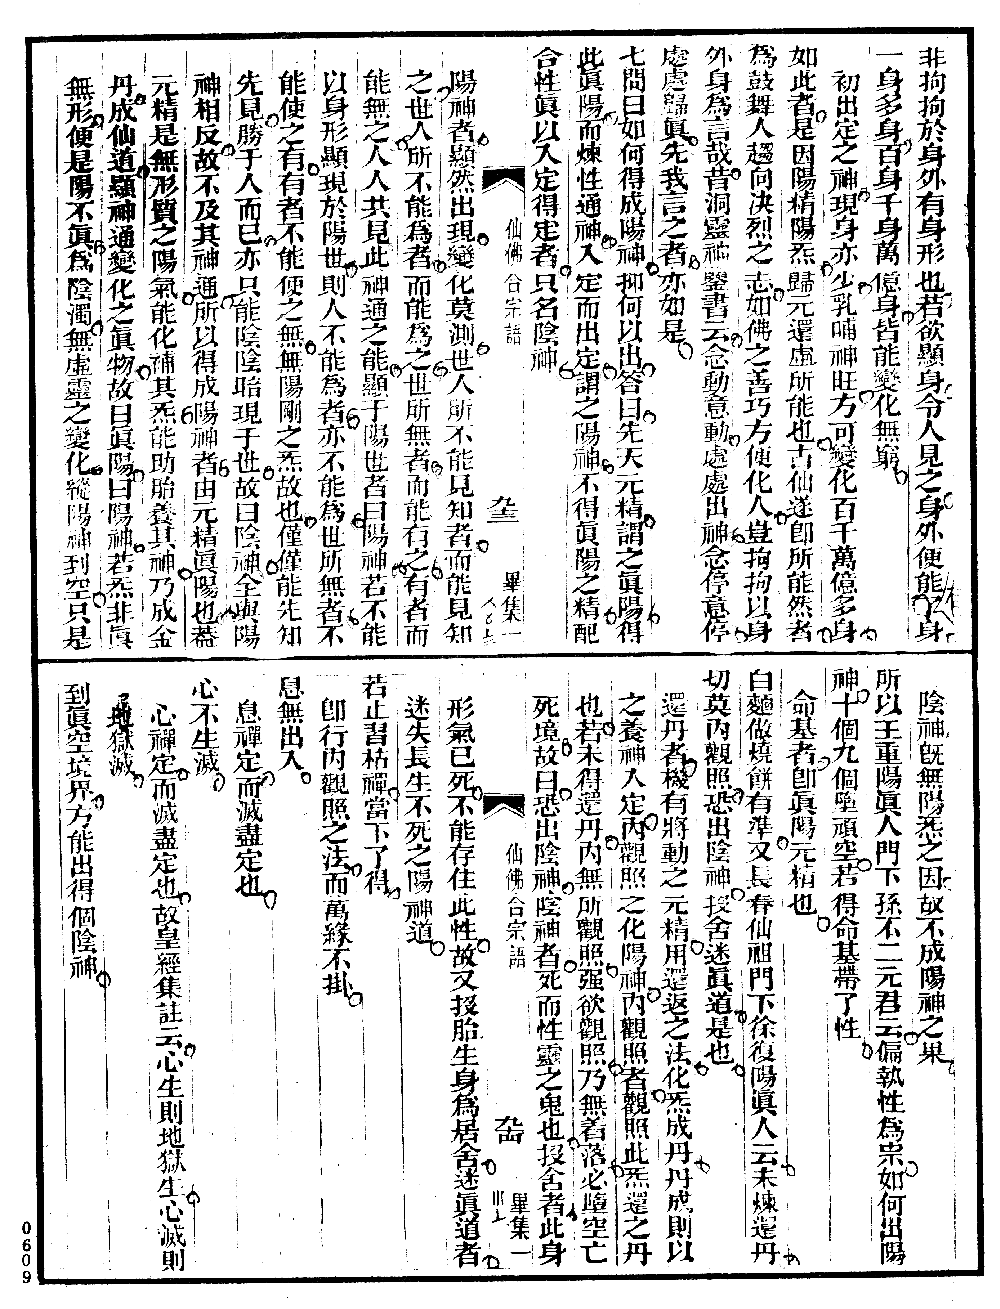 非拘拘於身外有身形也若欲顯身令人見之身外便能有身
一身多身百身千身萬億身皆能變化無窮
初出定之神現身亦少乳哺神旺方可變化百千萬億多身
如此者是因陽精陽炁歸元還虛所能也古仙遂卽所能然者
爲鼓舞人趨向决烈之志如佛之善巧方便化人豈拘拘以身
外身爲言哉昔洞靈神鑒書云念動意動處處出神念停意停
處處歸眞先我言之者亦如是
七問曰如何得成陽神抑何以出答曰先天元精謂之眞陽得
此眞陽而煉性通神入定而出定謂之陽神不得眞陽之精配
合性眞以入定得定者只名陰神
仙佛合宗語 畢集一
陽神者顯然出現變化莫測世人所不能見知者而能見知
之世人所不能爲者而能爲之世所無者而能有之有者而
能無之人人共見此神通之能顯于陽世者曰陽神若不能
以身形顯現於陽世則人不能爲者亦不能爲世所無者不
能使之有有者不能使之無無陽剛之炁故也僅僅能先知
先見勝于人而已亦只能陰陰暗現于世故曰陰神全與陽
神相反故不及其神通所以得成陽神者由元精眞陽也蓋
元精是無形質之陽氣能化補其炁能助胎養其神乃成金
丹成仙道顯神通變化之眞物故曰眞陽曰陽神若炁非眞
無形便是陽不眞爲陰濁無虛靈之變化縱陽神到空只是
陰神旣無陽炁之因故不成陽神之果
所以王重陽眞人門下孫不二元君云偏執性爲宗如何出陽
神十個九個墮頑空若得命基帶了性
命基者卽眞陽元精也
白麵做燒餅有準又長春仙祖門下徐復陽眞人云未煉還丹
切莫內觀照恐出陰神投舍迷眞道是也
還丹者機有將動之元精用還返之法化炁成丹丹成則以
之養神入定內觀照之化陽神內觀照者觀照此炁還之丹
也若未得還丹內無所觀照强欲觀照乃無着落必墮空亡
死境故曰恐出陰神陰神者死而性靈之鬼也投舍者此身
仙佛合宗語 畢集一
形氣已死不能存住此性故又投胎生身爲居舍迷眞道者
迷失長生不死之陽神道
若止習枯禪當下了得
卽行內觀照之法而萬緣不掛
息無出入
息禪定而滅盡定也
心不生滅
心禪定而滅盡定也故皇經集註云心生則地獄生心滅則
地獄滅
到眞空境界方能出得個陰神
0609